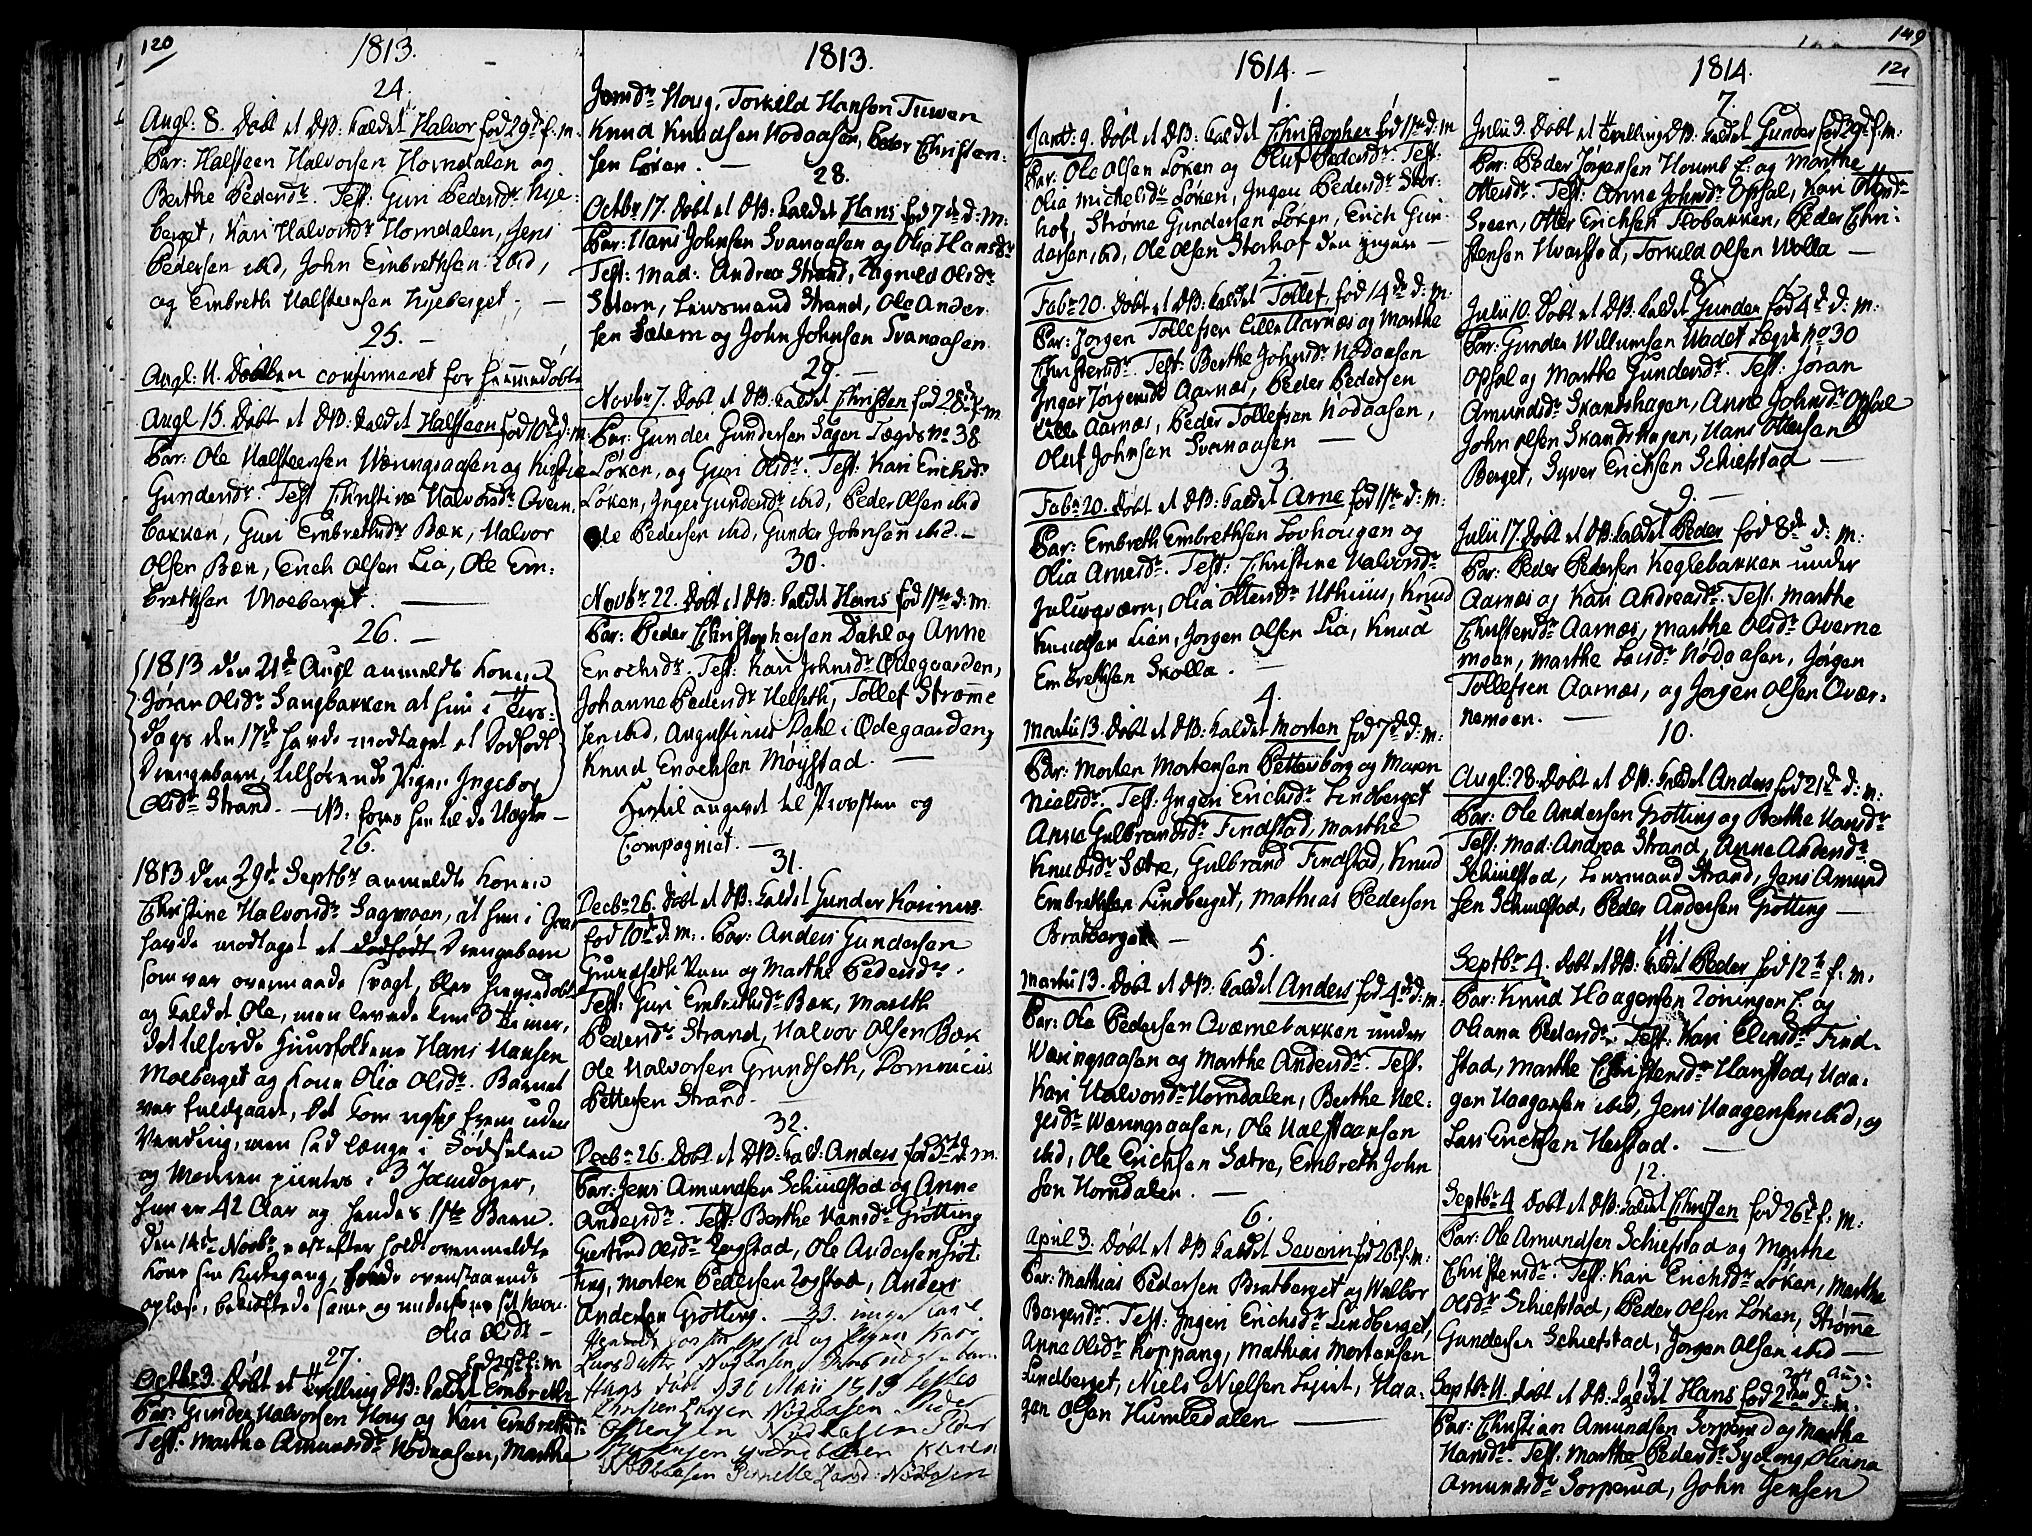 120
1813.
24.
Augl: 8. Døbt et DB: kaldet Halvor fød 29d f. m.
Par: Halsteen Halvorsen Hornedalen og
Berthe Pedersdr. Test: Guri Pedersdr Kje-
berget, Kari Halvorsdr Horndalen, Jens
Pedersen ibid, John Embrethsen ibid,
og Embreth Halsteensen Kjeberget. —
25. —
Augl: 11. confirmeret for hiemmedøbt
Augl 15. Døbt et DB. kaldet Halsteen fød 10d d: m.
Par: Ole Halsteensen Wæringsaasen og Kirstie
Gundersdr. Test Christine Halvorsdr Overn-
bakken, Guri Embrethsdr Bæk, Halvor
Olsen Bæk, Erich Olsen Lia, Ole Em-
brethsen Moeberget. —
26. —
1813 den 21d Augl anmeldte Konen
Jøran Olsdr Sangbakken at hun i Tirs-
dags den 17d havde modtaget et Dødfødt
Drengebarn, tilhørende Pigen Ingebor
Olsdr Strand. — NB.
26.
1813 den 29d Septbr anmeldte Konen
Christine Halvorsdr Sagmoen, at hun i
havde modtaget et Dødfødt Drengebarn
som var overmaade svagt, blev hiemedøbt
og kaldet Ole, men levede kun 3 Timer,
det tilhørde Huusfolkene Hans Hansen
Moeberget og Kone Olia Olsdr. Barnet
var fuldgaaet, det kom rigtig frem uden
Vending, men sad længe i Fødselen
og Moderen piintes i 3 Samdøger,
hun er 42 Aar og hendes 1ste Barn.
Den 14d Novbr næst efter holdt ovenmeldte
Kone sin Kirkegang, ovenstaaende
oplæst, bekræftede samme og underskrev sit Navn.
Olia Olsdr —
27. fød 29d f. m
Octbr 3. Døbt et Tvilling DB: kaldet Embreth
Par: Gunder Halvorsen Houg og Kari Embrethsdr
Test: Marthe Amundsdr Nødaasen, Marthe
1813.
Jensdr Houg, Torkild Hansen Tuven
Knud Knudsen Nødaasen, Peder Christen-
sen Løken. —
28.
Octbr 17. Døbt et DB: kaldet Hans fød 7de d: M:
Par: Hans Johnsen Svanaasen og Olia Hansdr
Test: Mad: Andrea Strand, Ragnild Olsdr
Sætern, Lensmand Strand, Ole Ander-
sen Sætern og John Johnsen Svanaasen.
29. —
Novbr 7. Døbt et DB: kaldet Christen fød 28d f. m
Par: Gunder Gundersen Sagen Lægds No 38
Løken, og Guri Olsdr. Test: Kari Erichsdr
Løken, Inger Gundersdr ibid, Peder Olsen ibid
Ole Pedersen ibid, Gunder Johnsen ibid. —
30.
Novbr 22. Døbt et DB: kaldet Hans fød 1ste d: m.
Par: Peder Christophersen Dahl og Anne
Enochsdr. Test: Kari Johnsdr Ødegaarden,
Johanne Pedersdr Helseth, Tollef Strømme
sen ibid, Augustinus Dahl i Ødegaarden,
Knud Enochsen Møystad. —
Hertil angivet til Provsten og
Compagniet. —
31.
Decbr 26. Døbt et DB: kaldet Gunder Karinus
fød 10d d: m. Par: Anders Gundersen
Grundseth og Marthe Pedersdr.
Test: Guri Embrethsdr Bæk, Marth
Pedersdr Strand, Halvor Olsen Bæk
Ole Halvorsen Grundseth, Dominicus
Pettersen Strand. —
32.
Decbr 26. Døbt et DB: kald: Anders fød 5d d: m.
Par: Jens Amundsen Schiulstad og Anne
Andersdr. Test: Berthe Hansdr Grøtting
Giertrud Olsdr Zagstad, Ole Andersen Grøt-
ting, Morten Pedersen Zagstad, Anders
Andersen Grøtting. — 33.
og Kari
Larsdatter Nødaasen,
Hans født d 30 Maii 1813
Christen Nødaasen Peder
Nødaasen Peder
Karen
Nødaasen Pernille Larsd: Nødaasen
1814. —
1.
Janr: 9. Døbt et DB: kaldet Christopher fød 1ste d: m
Par: Ole Olsen Løken og Oluf Pedersdr. Test:
Olia Michelsdr Løken, Ingeri Pedersdr Stor-
hof, Strøme Gundersen Løken, Erich Gun-
dersen, ibid, Ole Olsen Storhof den yngere —
2.
Febr 20. Døbt et DB: kaldet Tollef, fød 14de d: m:
Par: Jørgen Tollefsen Lille Aarnæs og Marthe
Christensdr. Test: Berthe Johnsdr Nødaasen
Inger Jørgensdr Aarnæs, Peder Pedersen
Lille Aarnæs, Peder Tollefsen Nødaasen,
Oluf Johnsen Svanaasen —
3.
Febr 20. Døbt et DB: kaldet Arne fød 1ste d: m:
Par: Embreth Embrethsen Lovhougen og
Olia Arnesdr. Test: Christine Halvorsdr
Juliusqværn, Olia Ottersdr Uthuus, Knud
Knudsen Lien, Jørgen Olsen Lia, Knud
Embrethsen Skolla. —
4.
Martii 13. Døbt et DB: kaldet Morten fød 7d d: m:
Par: Morten Mortensen Pettersborg og Maren
Nielsdr. Test: Ingeri Erichsdr Lindberget
Anne Gulbrandsdr Findstad, Marthe
Knudsdr Sætre, Gulbrand Findstad, Knud
Embrethsen Lindberget, Mathias Pedersen
Bratberget —
5.
Martii 13. Døbt et DB: kaldet Anders fød 4d d: m:
Par: Ole Pedersen Qværnebakken under
Wæringsaasen og Marthe Andersdr. Test.
Kari Halvorsdr Horndalen, Berthe Hel-
gesdr Wæringsaasen, Ole Halstaansen
ibid, Ole Erichsen Sætre, Embreth John
sen Horndalen. —
6.
April 3. Døbt et DB kaldet Severin fød 26d f. m:
Par: Mathias Pedersen Bratberget og Walbor
Borgersdr. Test: Ingeri Erichsdr Lindberget,
Anne Olsdr Koppang, Mathias Mortensen
Lindberget, Niels Nielsen, Haa-
gen Olsen Humledalen —
149
121
1814.
7.
Julii 3. Døbt et Tvilling DB: kaldet Gunder fød 29d f. m:
Par: Peder Jørgensen Houmb E: og Marthe
Ottersdr. Test: Anne Johnsdr Opsal, Kari Ottersdr
Sveen, Otter Erichsen Flobakken, Peder Chri-
stensen Hvarstad, Torkild Olsen Wolla —
8.
Julii 10. Døbt et DB: kaldet Gunder fød 4d d: m:
Par: Gunder Willumsen Wadet Lægds No 30
Opsal og Marthe Gundersdr. Test: Jøran
Amundsdr Skandshagen, Anne Johnsdr Opsal
John Olsen Skandshagen, Hans Ottersen
Berget, Syver Erichsen Schiefstad —
9. —
Julii 17. Døbt et DB: kaldet Peder fød 8de d: m:
Par: Peder Pedersen Keglebakken under
Aarnæs og Kari Andreasdr. Test: Marthe
Christensdr Aarnæs, Marthe Olsdr Qverne
moen, Marthe Larsdr Nødaasen, Jørgen
Tollefsen Aarnæs, og Jørgen Olsen Qvær-
nemoen. —
10.
Augl: 28. Døbt et DB: kaldet Anders fød 21d d: m:
Par: Ole Andersen Grøtting og Berthe Hansdr
Test: Mad: Andrea Strand, Anne Andersdr
Schiulstad, Lensmand Strand, Jens Amund
sen Schiulstad, Peder Andersen Grøtting —
11.
Septbr 4. Døbt et DB: kaldet Peder fød 12te f. m.
Par: Knud Haagensen Løningen E: og
Oliana Pedersdr. Test: Kari Elensdr Find-
stad, Marthe Christensdr Hanstad, Haa-
gen Haagensen ibid, Jens Haagensen ibid, og
Lars Erichsen Herstad. —
12.
Septbr 4 Døbt et DB: kaldet Christen fød 26d f: m:
Par: Ole Amundsen Schiefstad og Marthe
Christensdr. Test: Kari Erichsdr Løken, Marthe
Olsdr Schiefstad, Peder Olsen Løken, Strømme
Gundersen Schiefstad, Jørgen Olsen ibid —
13. Aug:
Septbr 11. Døbt et DB: kaldet Hans fød d: m:
Par: Christian Amundsen Sorperud og Marthe
Hansdr. Test: Marthe Pedersdr Sydeng, Oliana
Amundsdr Sorperud, John Jensen